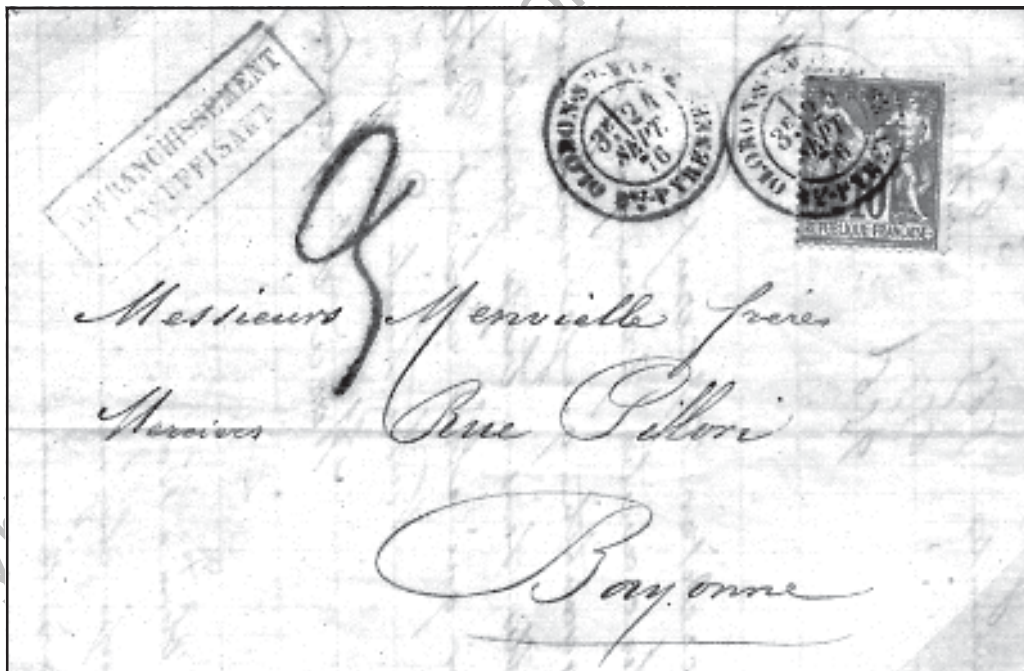 AFFRANCHISSEMENT
INSUFFISANT
OLORON-STE-MARIE
3E
24
SEPT.
76
BSES-PYRENEES
OLORON-S
3E
SEPT
10
REPUBLIQUE FRANCAISE
Messieurs Menvielle frères
Rue Pillori
Bayonne